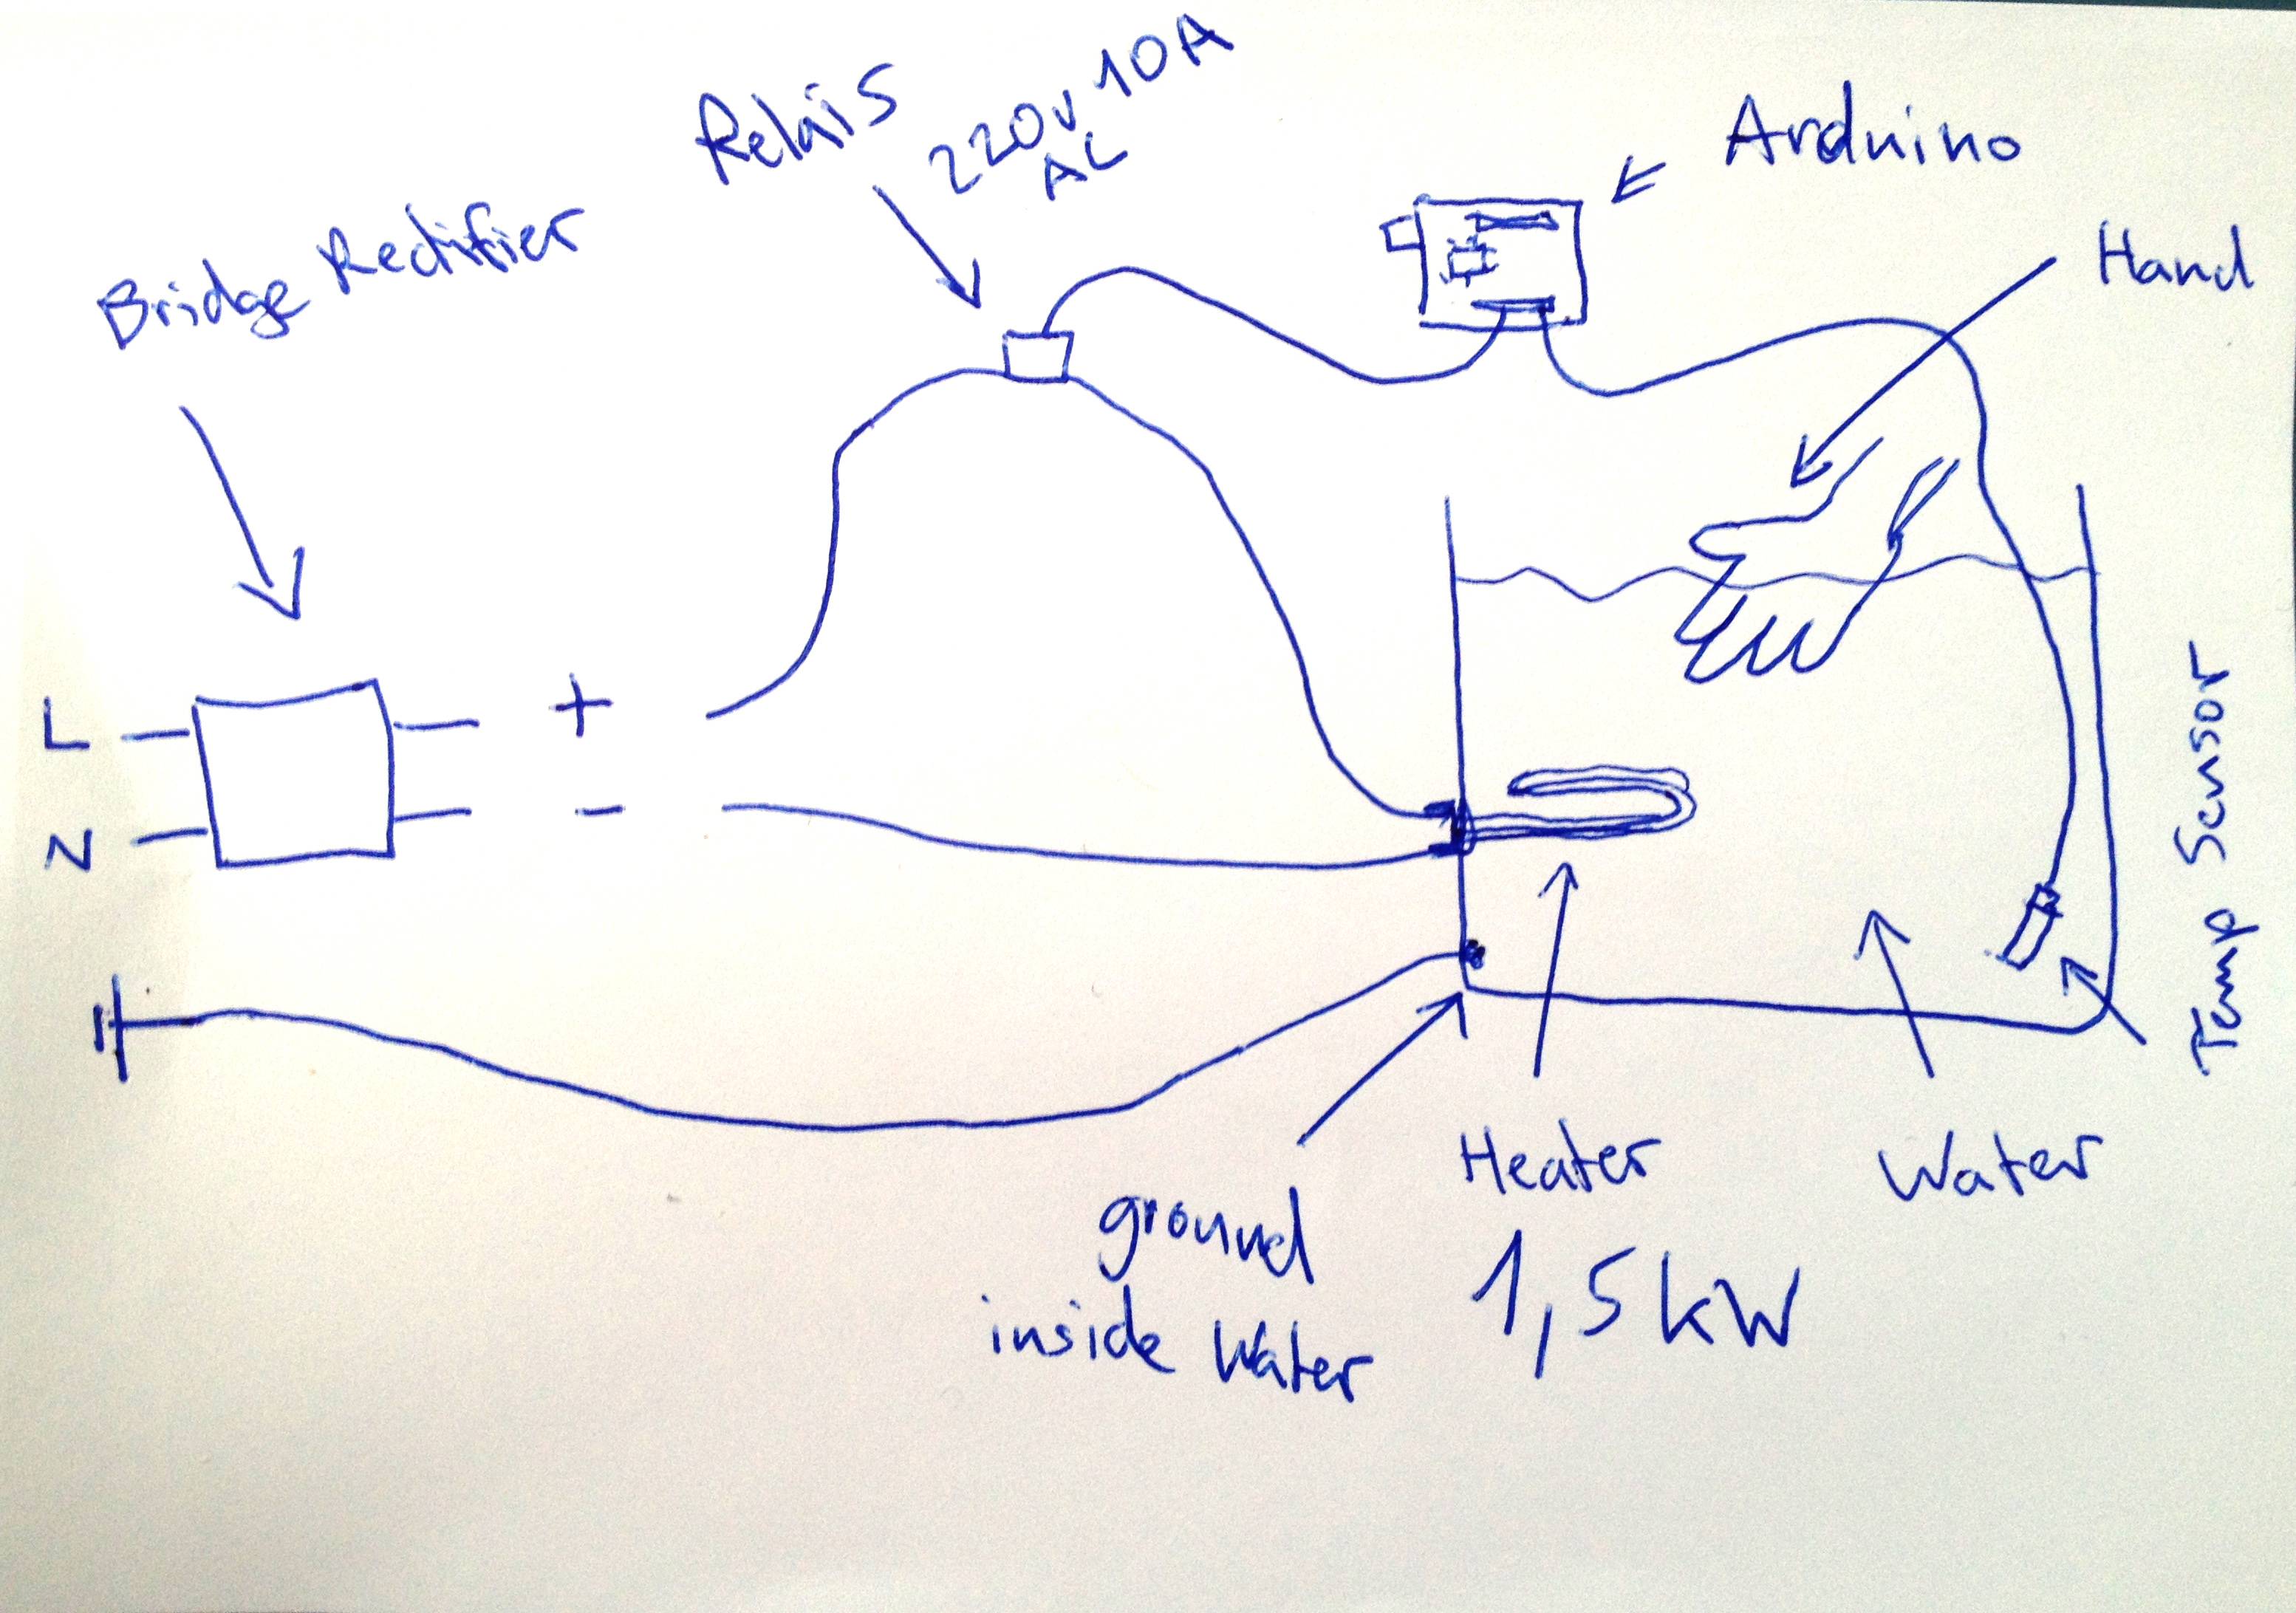 Relais
220V 10A
AC
Arduino
Hand
Bridge Rectifier
L
+
N
-
Temp Sensor
ground
inside Water
Heater
1,5kW
Water